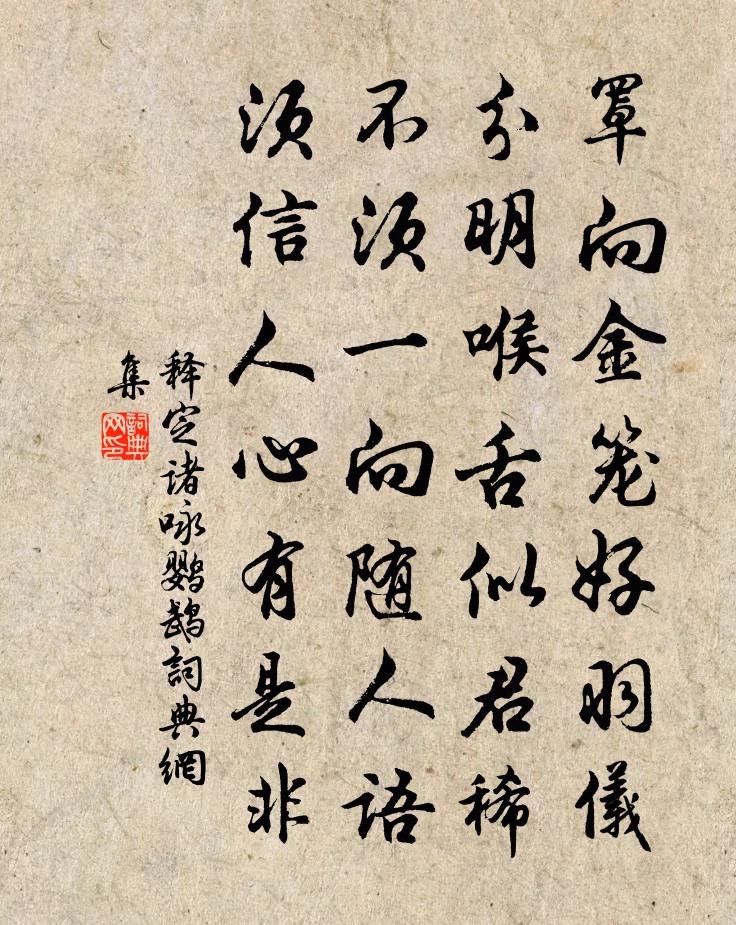 罩向金笼好羽儀
分明喉舌似君稀
不须一向随人语
须信人心有是非
释定诸咏鹦鹉詞典網
集
詞典网印